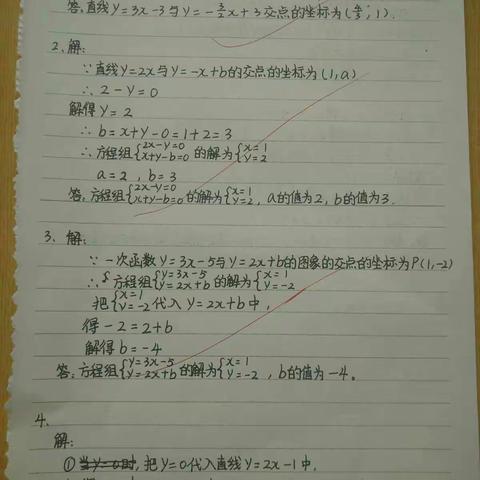 答:直线y=3x-3与y=-3/2x+3交点的坐标为(4/3, 1).
2、解:
∵直线y=2x与y=-x+b的交点的坐标为(1,a)
∴2-y=0
解得y=2
∴b=x+y-0=1+2=3
∴方程组{2x-y=0 x+y-b=0的解为{x=1 y=2
a=2,b=3
答:方程组{2x-y=0 x+y-b=0的解为{x=1 y=2,a的值为2,b的值为3.
3、解:
∵一次函数y=3x-5与y=2x+b的图象的交点的坐标为P(1,-2)
∴方程组{y=3x-5 y=2x+b的解为{x=1 y=-2
把{x=1 y=-2代入y=2x+b中,
得-2=2+b
解得b=-4
答:方程组{y=3x-5 y=2x+b的解为{x=1 y=-2,b的值为-4。
4、
解:
①当y=0时,把y=0代入直线y=2x-1中,